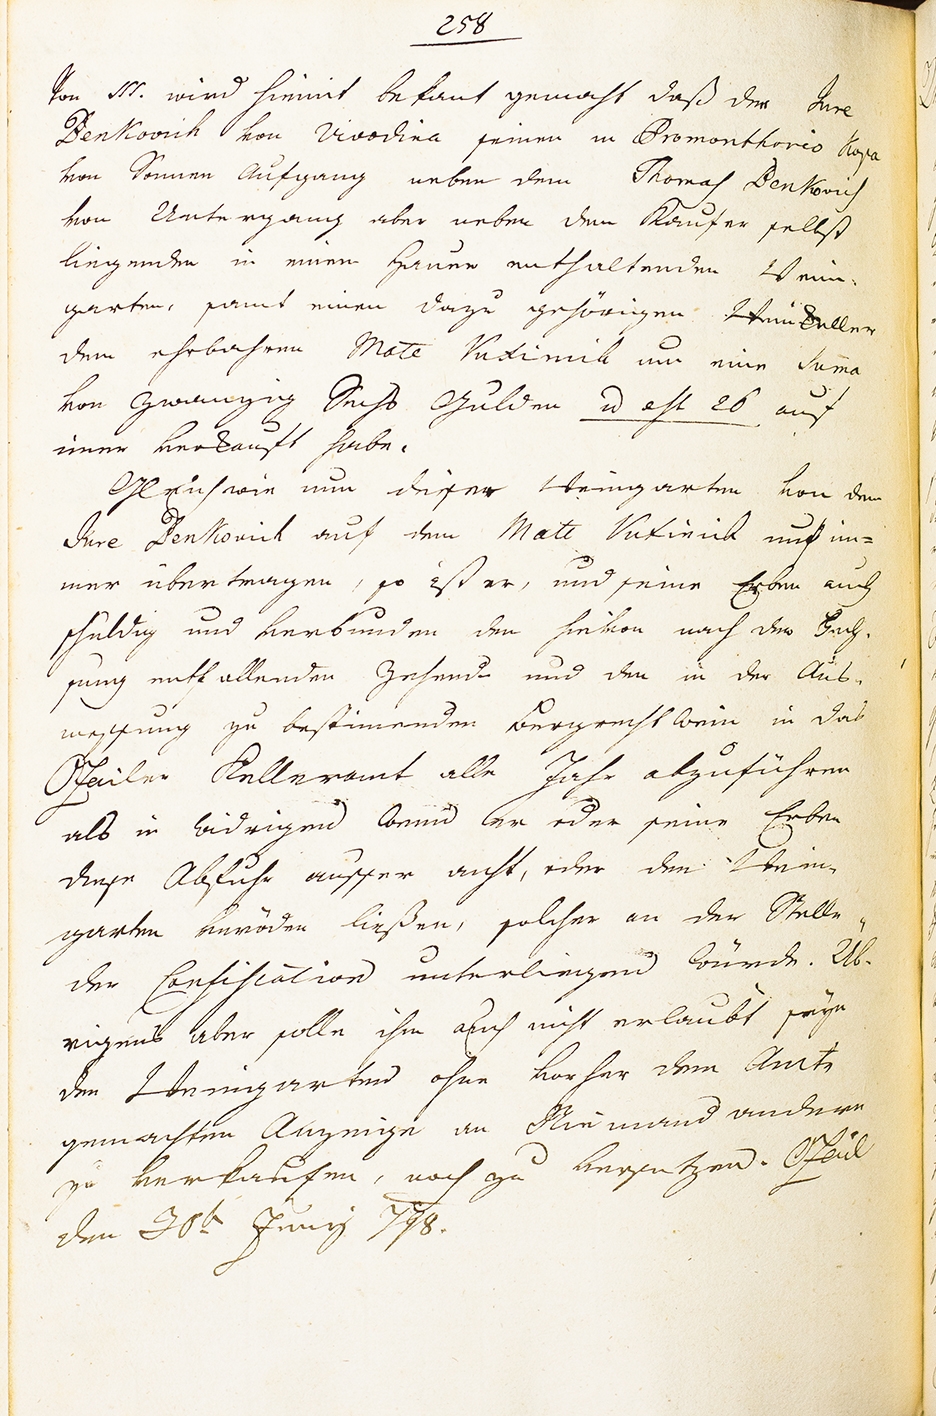 258
Von H. wird hiemit bekant gemacht daß der Jure
Benkovich von Vivodina seinen in Promonthorio Kopa
von Sonnen Aufgang neben dem Thomas Benkovich
von Untergang aber neben dem Kaufer selbst
liegenden in einen Hauer enthaltenden Wein-
garten, samt einen dazu gehörigen Weinkeller
dem ehrbahren Mate Vuxinich um eine Summa
von zwanzig Sechs Gulden id est 26 auf
imer verkauft habe.
Gleichwie nun dieser Weingarten von dem
Jure Benkovich auf dem Mate Vuxinich auf im=
mer übertragen, so ist er, und seine Erben auch
schuldig und verbunden den hievon nach der Fech-
sung entfallenden Zehend und den in der Aus-
messung zu bestimenden Bergrecht Wein in das
Kelleramt alle Jahr abzuführen
als in widrigend wenn er oder seine Erben
diese Abfuhr ausser acht, oder den Wein-
garten veröden ließen, solcher an der Stelle
der Confiscation unterliegend würde. Üb-
rigens aber solle ihm auch nicht erlaubt seyn
den Weingarten ohne vorher dem Amte
gemachten Anzeige an Niemand andern
zu verkaufen, noch zu versetzen.
den 30t Junij 798.